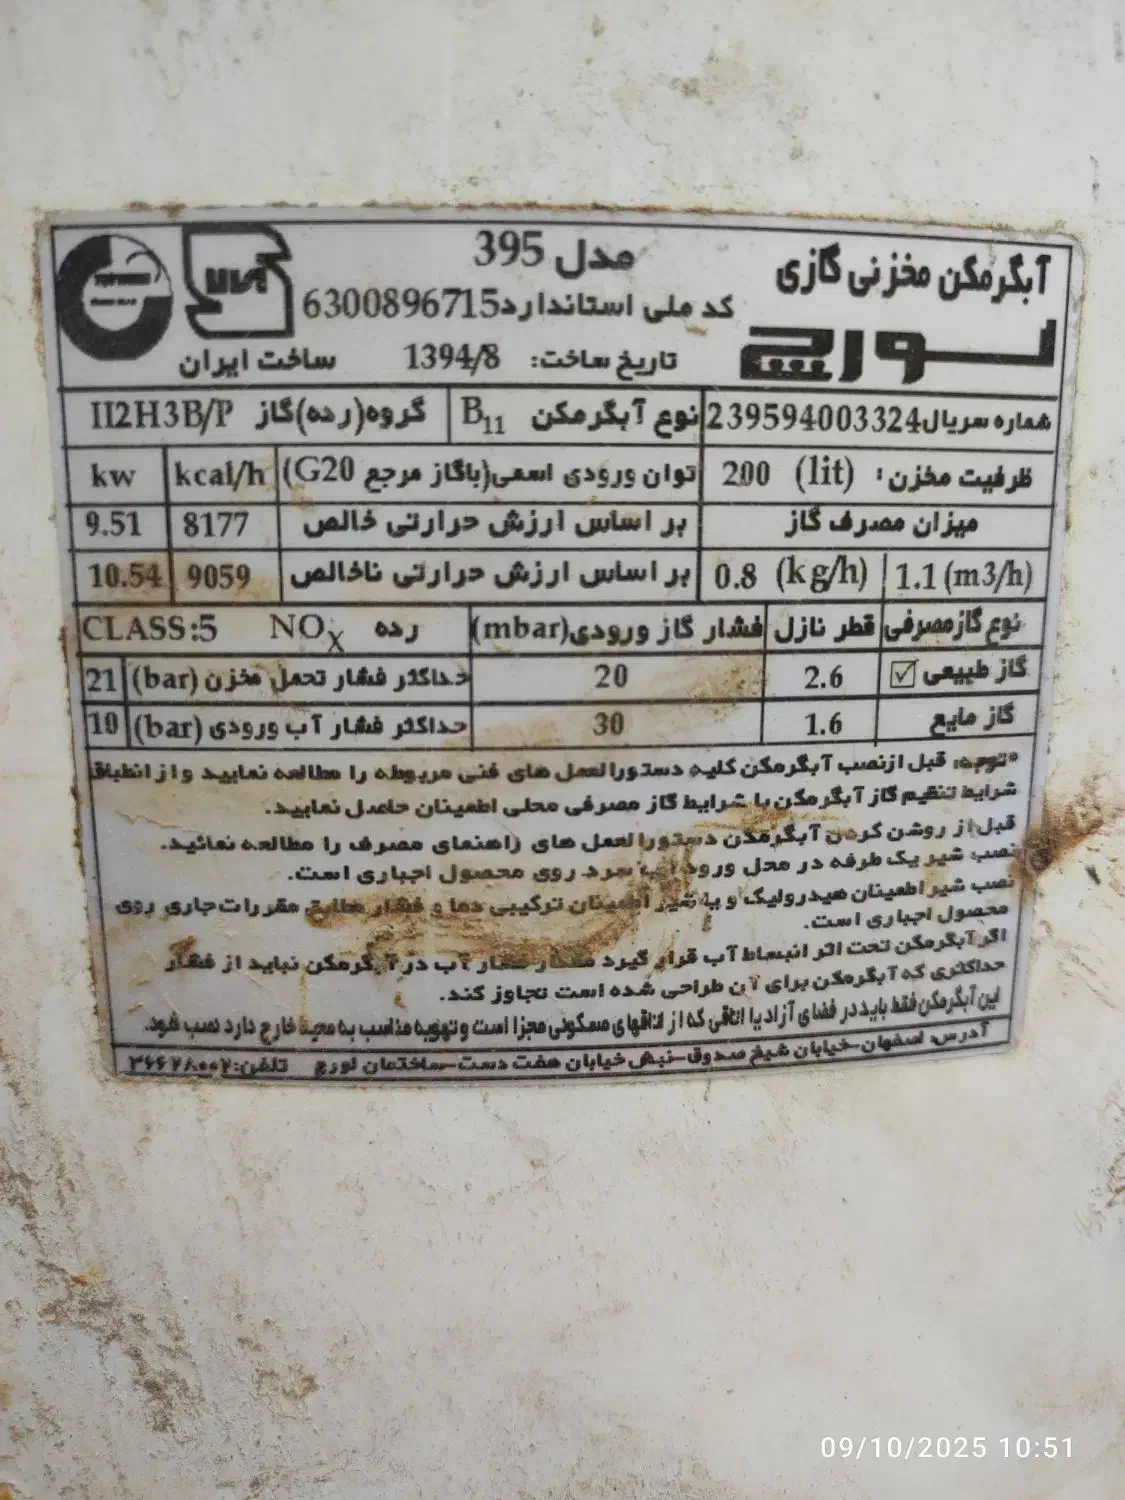 آبگرمکن مخزنی گازی
لورچ
مدل 395
کد ملی استاندارد 6300896715
تاریخ ساخت: 1394/8 ساخت ایران
شماره سریال 239594003324 نوع آبگرمکن B11 گروه(رده)گاز II2H3B/P
ظرفیت مخزن: 200 (lit) توان ورودی اسمی(باگاز مرجع G20) kcal/h kw
میزان مصرف گاز بر اساس ارزش حرارتی خالص 8177 9.51
1.1 (m3/h) 0.8 (kg/h) بر اساس ارزش حرارتی ناخالص 9059 10.54
نوع گازمصرفی قطر نازل فشار گاز ورودی(mbar) رده NOX CLASS:5
گاز طبیعی ☑ 2.6 20 حداکثر فشار تحمل مخزن (bar) 21
گاز مایع 1.6 30 حداکثر فشار آب ورودی (bar) 10
*توجه: قبل ازنصب آبگرمکن کلیه دستورالعمل های فنی مربوطه را مطالعه نمایید و از انطباق
شرایط تنظیم گاز آبگرمکن با شرایط گاز مصرفی محلی اطمینان حاصل نمایید.
قبل از روشن کردن آبگرمکن دستورالعمل های راهنمای مصرف را مطالعه نمائید.
نصب شیر یک طرفه در محل ورود آب سرد روی محصول اجباری است.
نصب شیر اطمینان هیدرولیک و یا شیر اطمینان ترکیبی دما و فشار مطابق مقررات جاری روی
محصول اجباری است.
اگر آبگرمکن تحت اثر انبساط آب قرار گیرد مقدار فشار آب در آبگرمکن نباید از فشار
حداکثری که آبگرمکن برای آن طراحی شده است تجاوز کند.
این آبگرمکن فقط باید در فضای آزاد یا اتاقی که از اتاقهای مسکونی مجزا است و تهویه مناسب به محیط خارج دارد نصب شود.
آدرس: اصفهان-خیابان شیخ صدوق-نبش خیابان هفت دست-ساختمان لورچ تلفن: ۳۶۶۲۸۰۰۲
09/10/2025 10:51